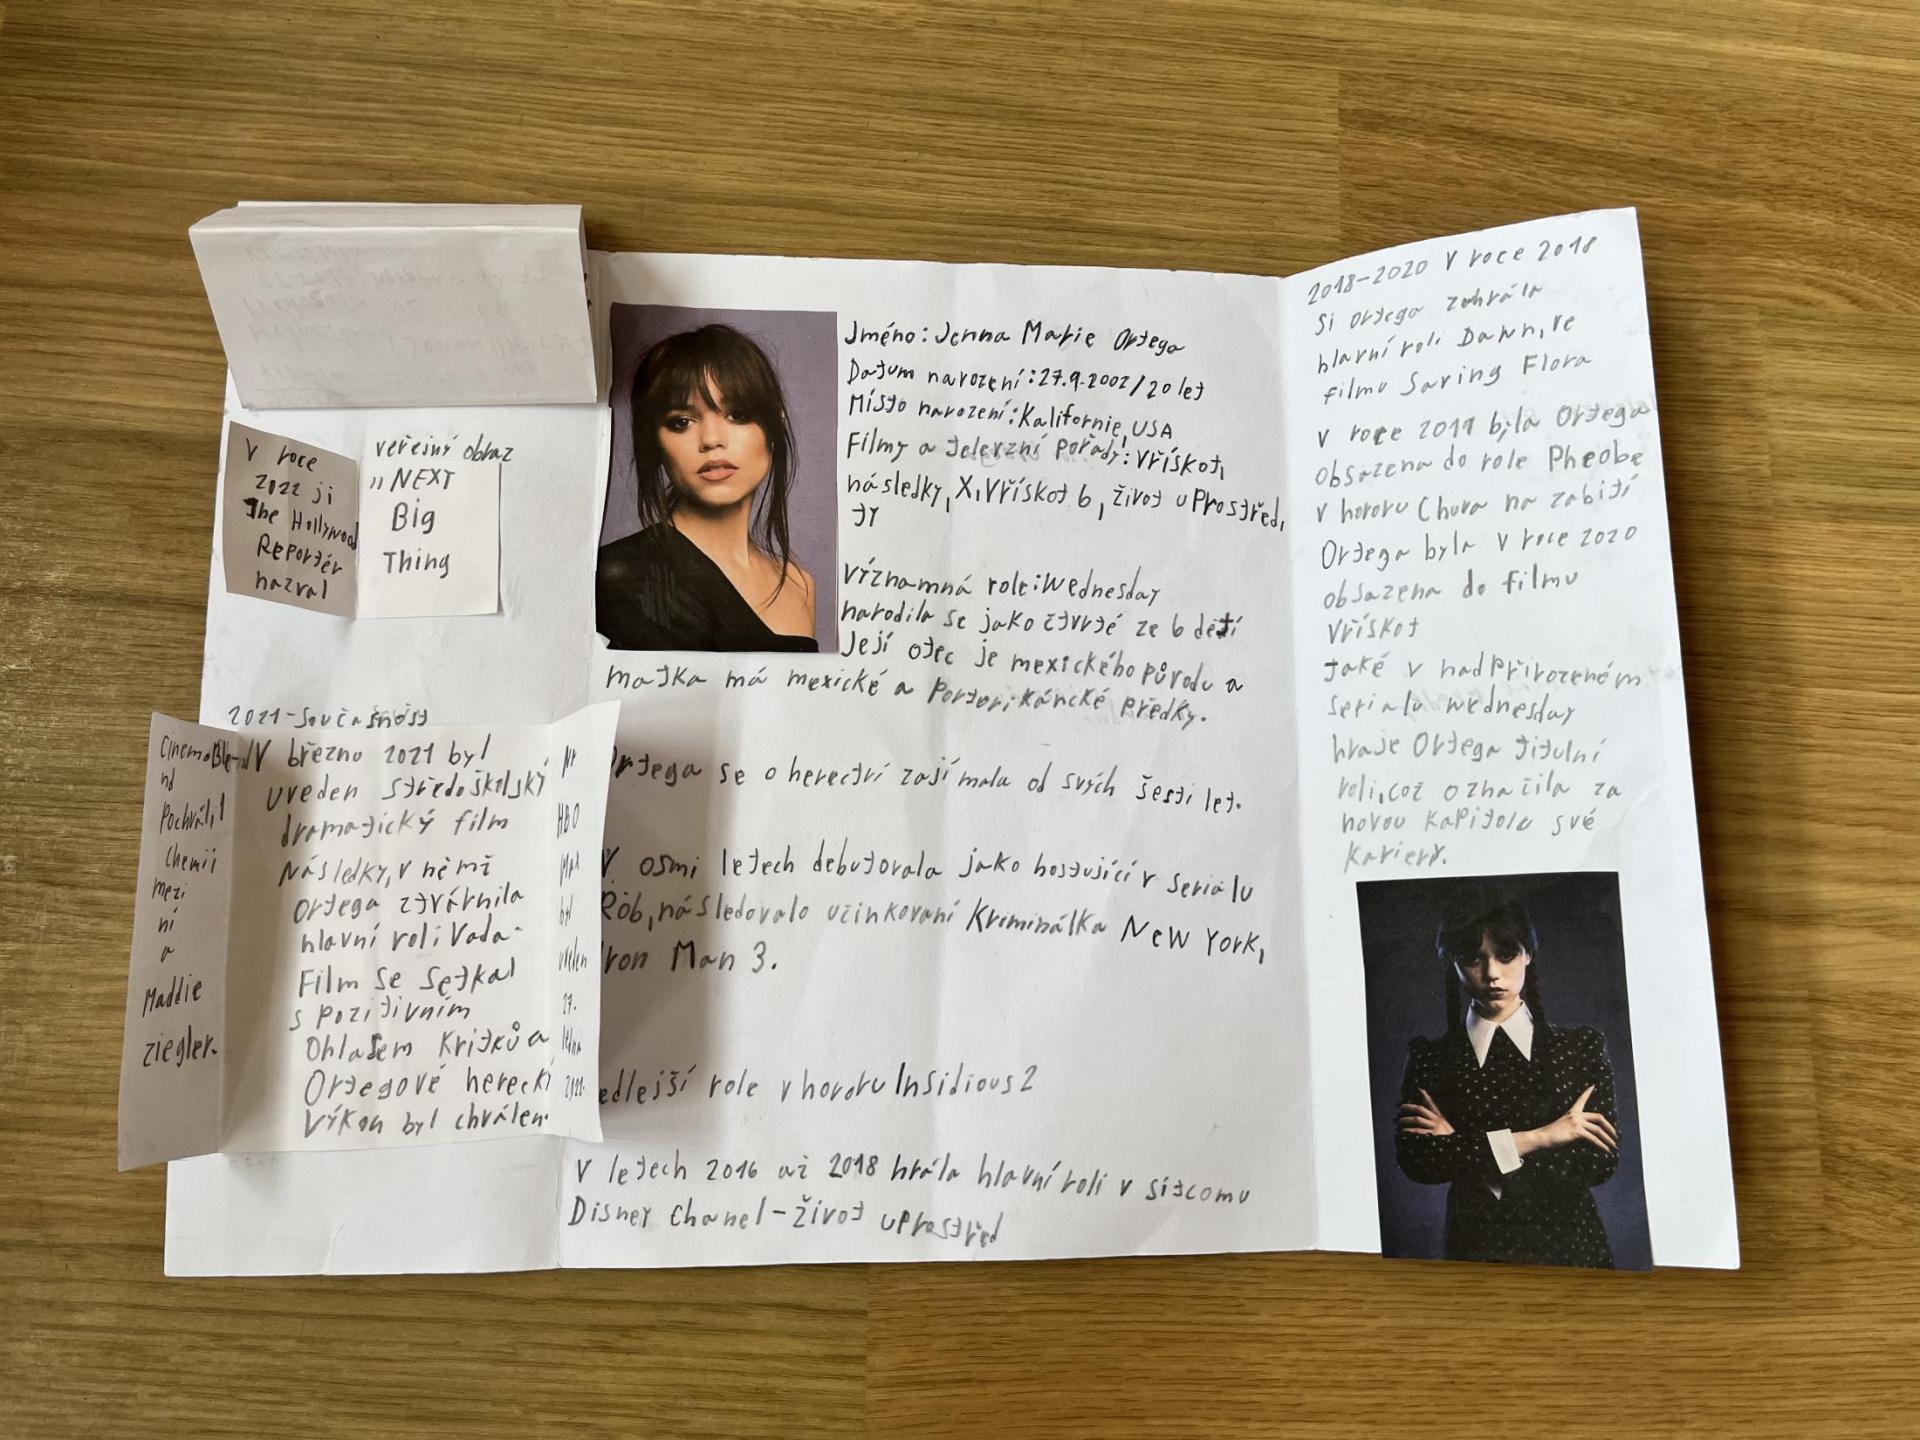 V roce
2022 ji
The Hollywood
Reportér
nazval
veřejný obraz
„NEXT
Big
Thing
2021-Současnost
CinemaBle-
nd
Pochválil
Chemii
mezi
ní
a
Maddie
ziegler.
V březnu 2021 byl
uveden středoškolský
dramatický film
Následky, v němž
Ortega ztvárnila
hlavní roli Vada.
Film se setkal
s pozitivním
Ohlasem Kritků a
Ortegové herecký
výkon byl chválen.
HBO
Max
byl
uveden
27.
ledna
Jméno: Jenna Marie Ortega
Datum narození: 27.9.2002/20 let
Místo narození: Kalifornie, USA
Filmy a televzní pořady: Vřískot,
následky, X, Vřískot 6, život uprostřed,
ty
Významná role: Wednesday
narodila se jako čtvrté ze 6 dětí
Její otec je mexického původu a
matka má mexické a Portorikáncké předky.
Ortega se o herectví zajímala od svých šesti let.
V osmi letech debutovala jako hostující v seriálu
Rob, následovalo učinkovaní Kriminálka New York,
Iron Man 3.
edlejší role v hororu Insidious 2
V letech 2016 až 2018 hrála hlavní roli v sitcomu
Disney Chanel-život uprostřed
2018-2020 V roce 2018
si Ortega zahrála
hlavní roli Dawn, ve
filmu Saving Flora
V roce 2019 byla Ortega
obsazena do role Pheobe
v hororu Chůva na zabití
Ortega byla v roce 2020
obsazena do filmu
Vřískot
také v nadpřirozeném
serialu wednesday
hraje Ortega titulní
roli, což označila za
novou kapitolu své
kariery.